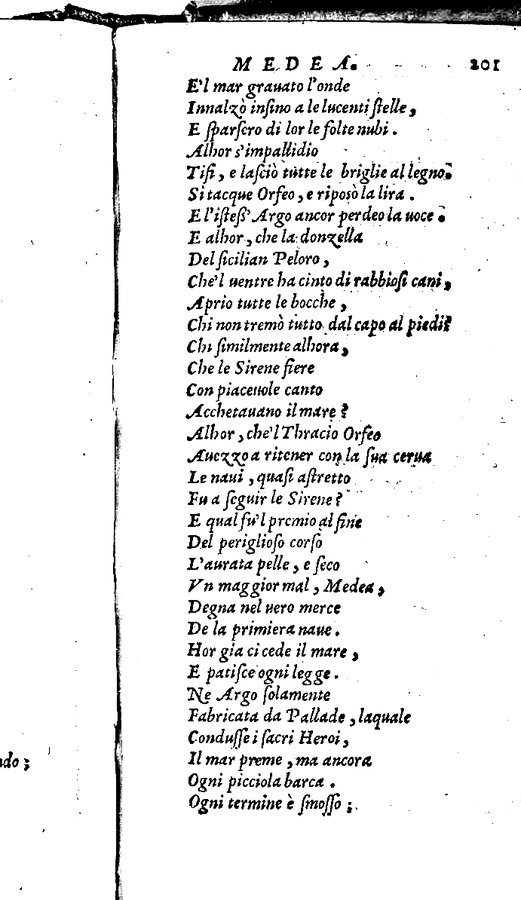 MEDEA. 201
E'l mar grauato l'onde
Innalzò insino a le lucenti stelle,
E sparsero di lor le folte nubi.
Alhor s'impallidio
Tifi, e lasciò tutte le briglie al legno.
Si tacque Orfeo, e riposò la lira.
E l'istess' Argo ancor perdeo la uoce.
E alhor, che la donzella
Del sicilian Peloro,
Che'l uentre ha cinto di rabbiosi cani,
Aprio tutte le bocche,
Chi non tremò tutto dal capo al piedi?
Chi similmente alhora,
Che le Sirene fiere
Con piaceuole canto
Acchetauano il mare?
Alhor, che'l Thracio Orfeo
Auezzo a ritener con la sua cerua
Le naui, quasi astretto
Fu a seguir le Sirene?
E qual fu'l premio al fine
Del periglioso corso
L'aurata pelle, e seco
Vn maggior mal, Medea,
Degna nel uero merce
De la primiera naue.
Hor gia ci cede il mare,
E patisce ogni legge.
Ne Argo solamente
Fabricata da Pallade, laquale
Condusse i sacri Heroi,
Il mar preme, ma ancora
Ogni picciola barca.
Ogni termine è smosso;
ndo;